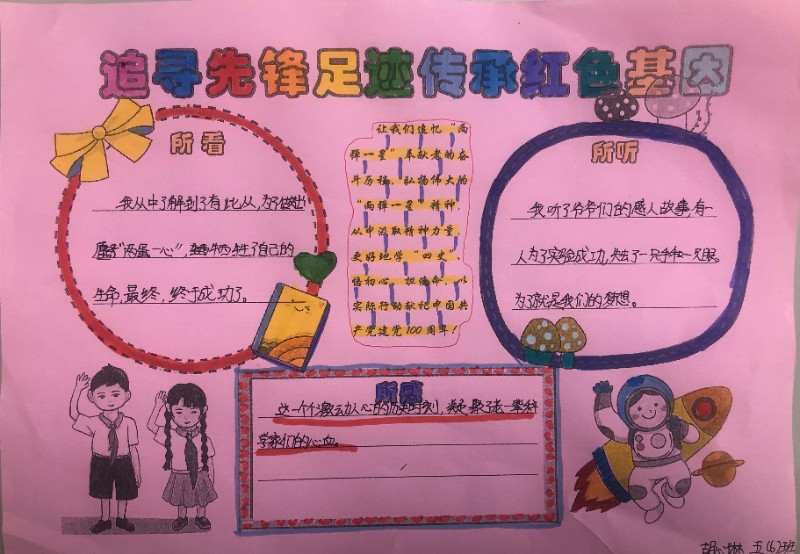 追寻先锋足迹传承红色基因
所看
我从中了解到了有些人,为了做出
"两蛋一心",牺牲了自己的
生命,最终,终于成功了。
让我们追忆"两
弹一星"奉献者的奋
斗历程,弘扬伟大的
"两弹一星"精神,
从中汲取精神力量,
更好地学"四史",
悟初心,担使命,以
实际行动献礼中国共
产党建党100周年!
所听
我听了爷爷们的感人故事,有一
人为了实验成功,失去了一只手和一只眼。
为了就是我们的梦想。
所感
这一个个激动人心的历史时刻,凝聚了老一辈科
学家们的心血。
五(6)班